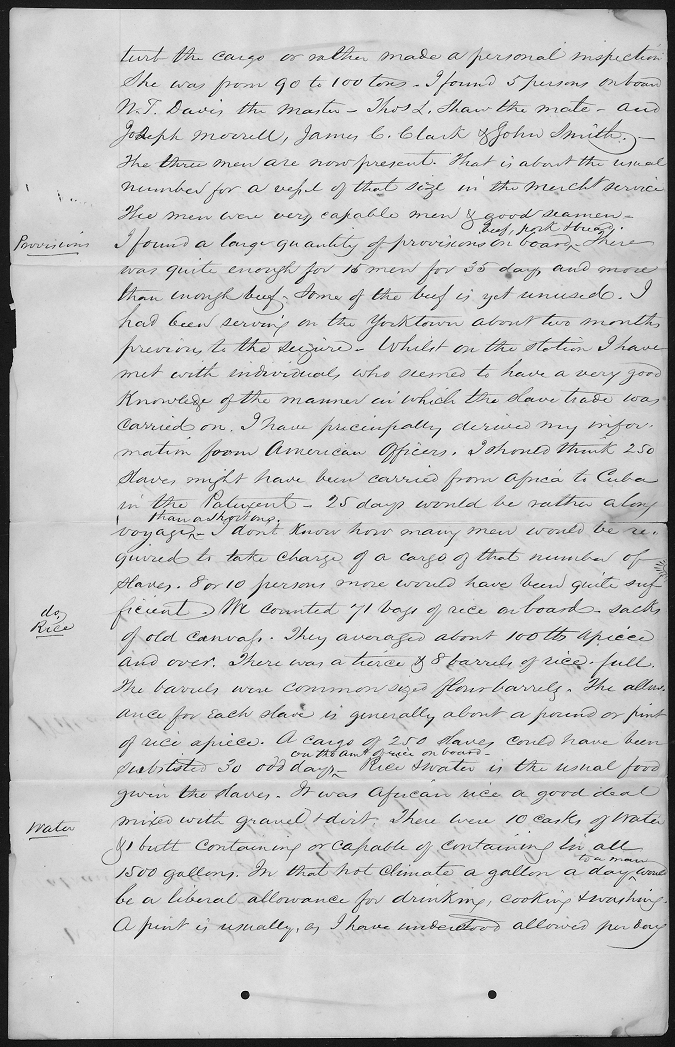 turb the cargo or rather made a personal inspection
She was from 90 to 100 tons - I found 5 persons on board
N. T. Davis the master - Thos L. Shaw the mate - and
Joseph Morrell, James C. Clark & John Smith. -
The three men are now present. That is about the usual
number for a vessel of that size in the mercht service
The men were very capable men & good seamen -
beef, pork & bread.
Provisions I found a large quantity of provisions on board - There
was quite enough for 15 men for 35 days and more
than enough beef - Some of the beef is yet unused. I
had been serving on the Yorktown about two months
previous to the seizure - Whilst on the station I have
met with individuals who seemed to have a very good
Knowledge of the manner in which the slave trade was
carried on. I have principally derived my infor-
mation from American Officers. I should think 250
slaves might have been carried from Africa to Cuba
in the Patuxent - 25 days would be rather a long
than a short one,
voyage - I don't Know how many men would be re-
quired to take charge of a cargo of that number of
slaves. 8 or 10 persons more would have been quite suf
do, Rice
ficient. We counted 71 bags of rice on board - sacks
of old canvass. They averaged about 100 lbs apiece
and over. There was a tierce & 8 barrels of rice - full.
The barrels were common sized flour barrels - The allow-
ance for each slave is generally about a pound or pint
of rice apiece. A cargo of 250 slaves could have been
on the amt of rice on board -
subsisted 30 odd days - Rice & water is the usual food
given the slaves. It was African rice a good deal
mixed with gravel & dirt. There were 10 casks of water
Water
& 1 butt containing or capable of containing in all
to a man
1500 gallons. In that hot climate a gallon a day would
be a liberal allowance for drinking, cooking & washing.
A pint is usually, as I have understood allowed per day